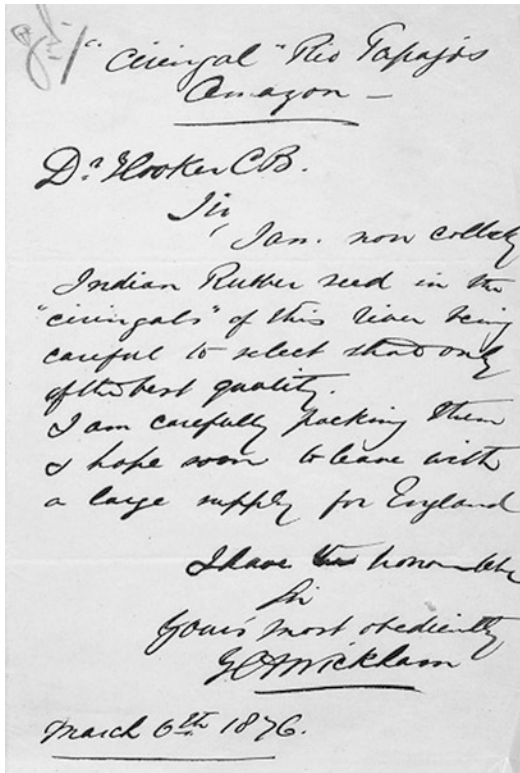 "Ciringal" Rio Tapajos
Amazon —
Dr Hooker C.B.
Sir,
I am now collectg
Indian Rubber seed in the
"ciringals" of this river being
careful to select that only
of the best quality.
I am carefully packing them
& hope soon to leave with
a large supply for England
I have the honor to be
Sir
Yours most obediently
H A Wickham
March 6th 1876.